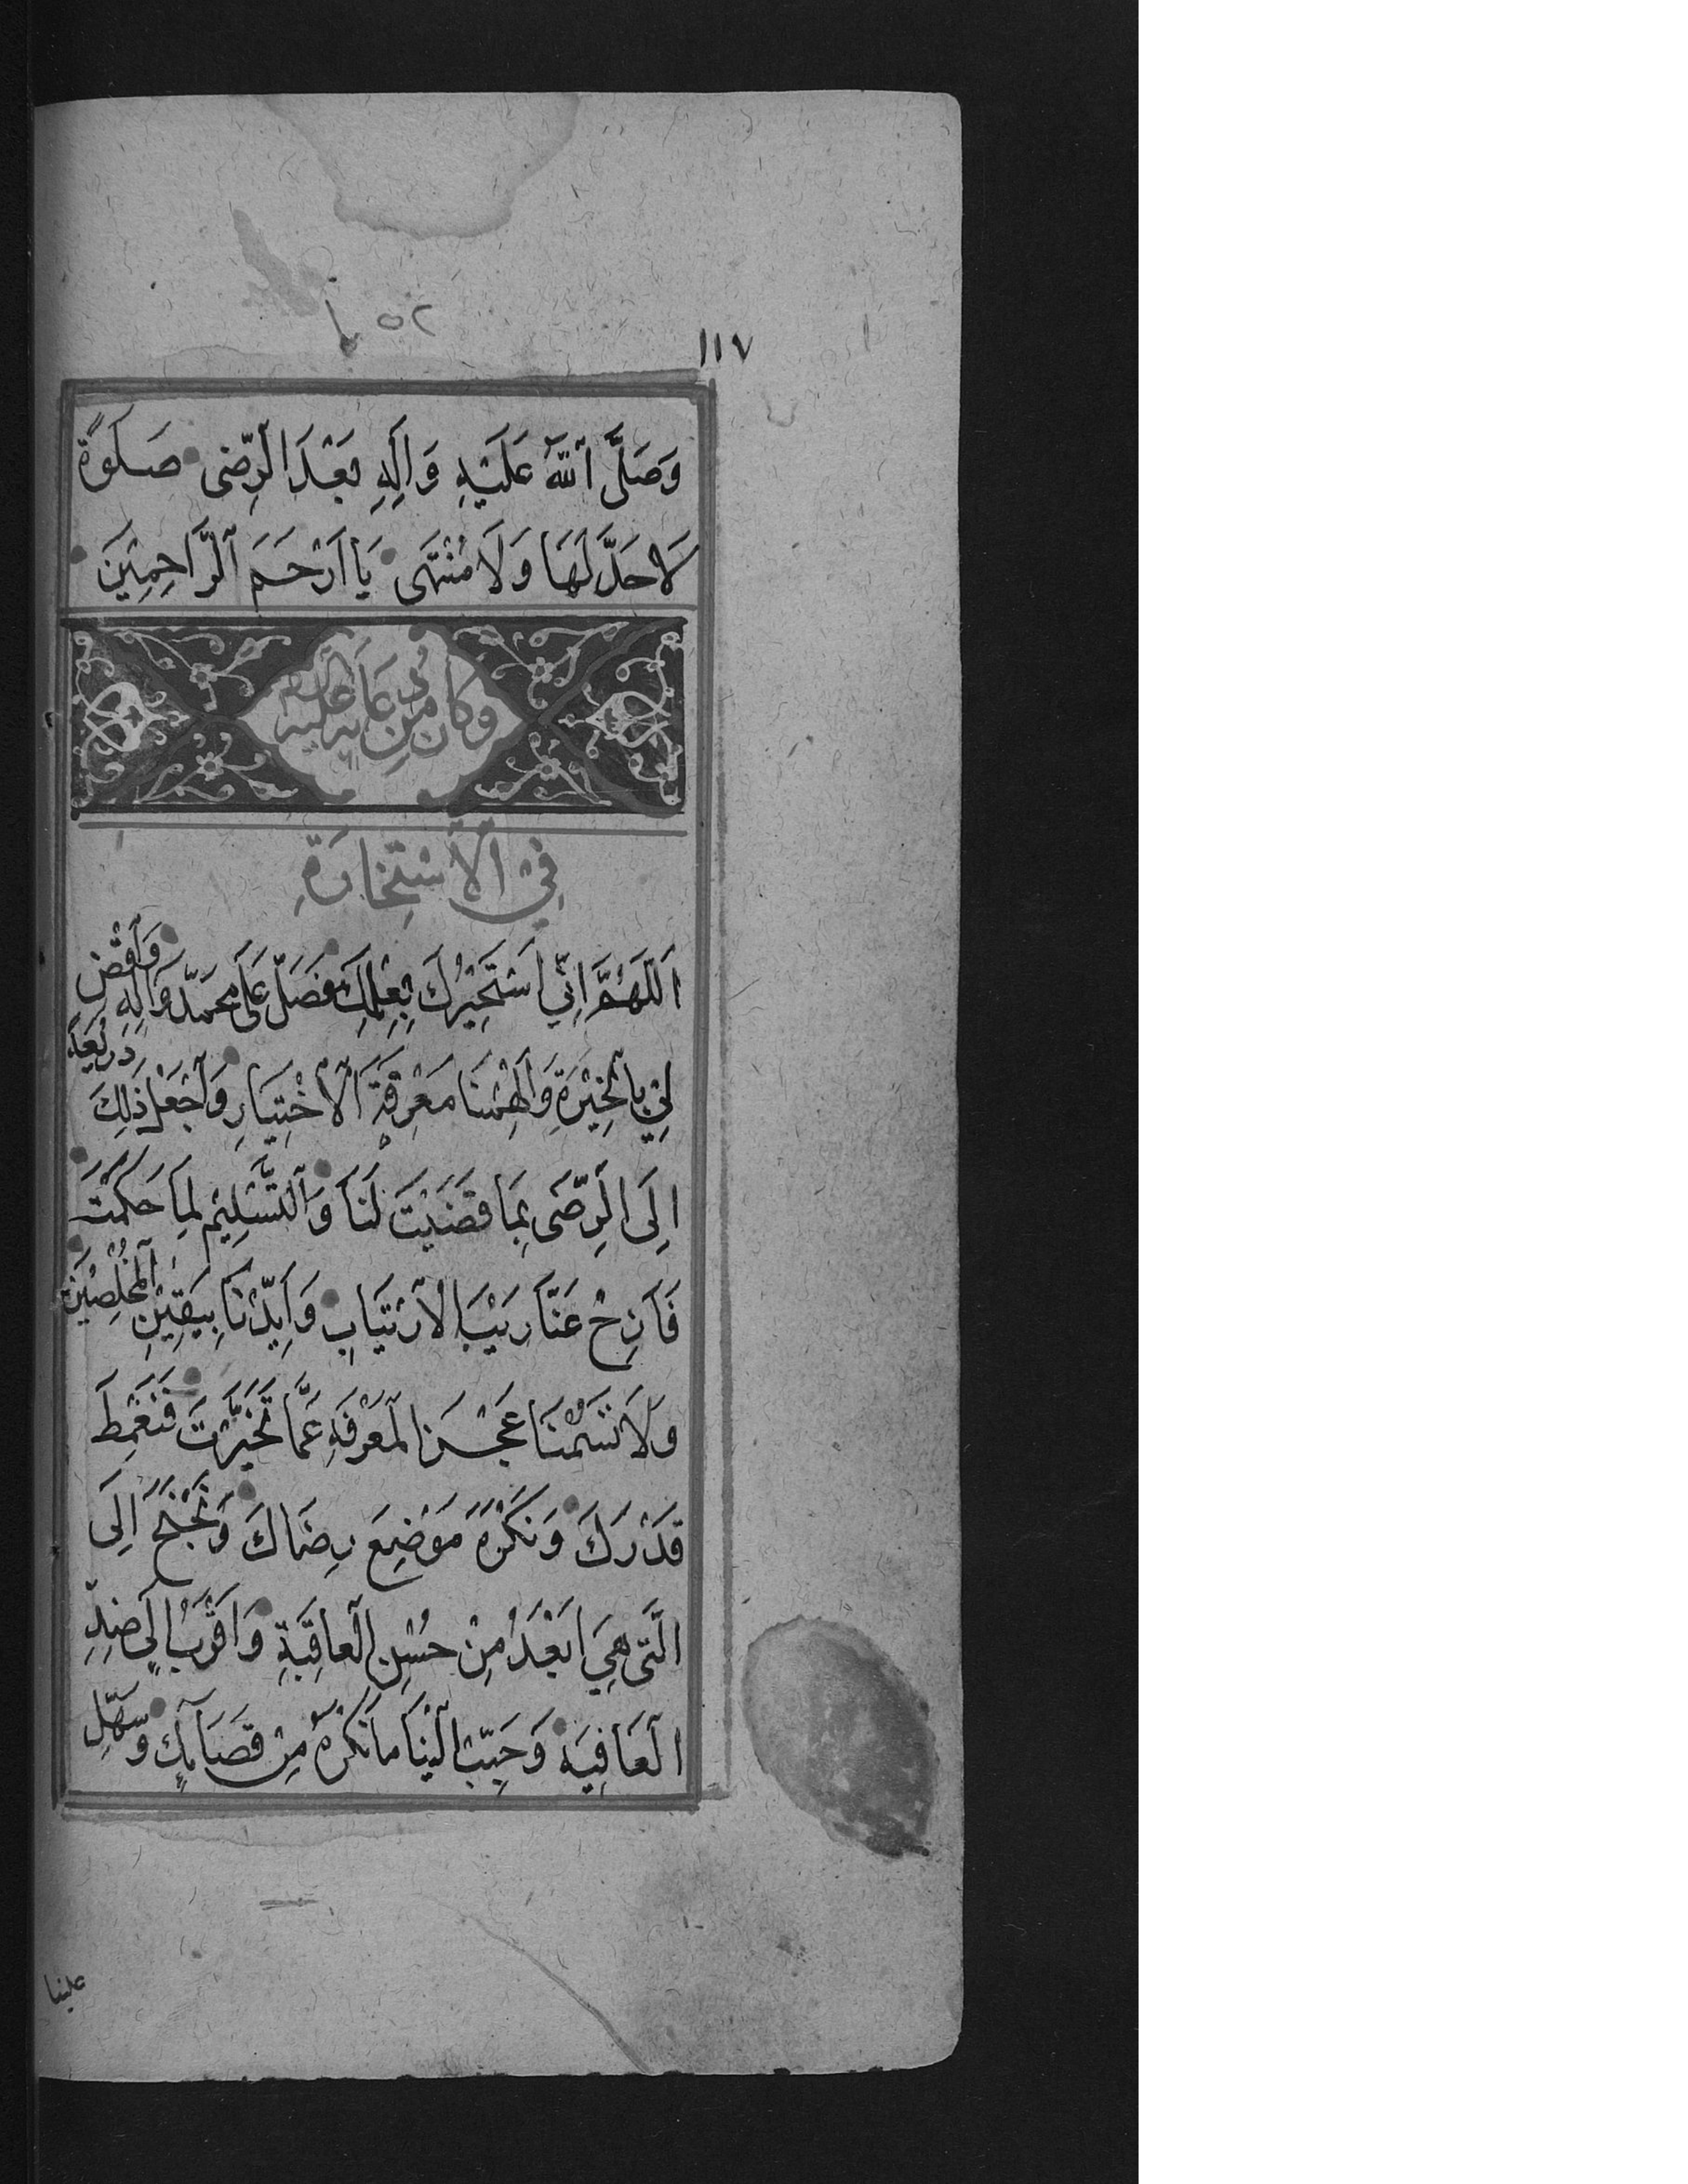 ٥٢
١١٧
وَصَلَّى ٱللّٰهُ عَلَيْهِ وَاٰلِهِ بَعْدَ الرِّضٰى صَلٰوةً
لَا حَدَّ لَهَا وَلَا مُنْتَهٰى يَا اَرْحَمَ ٱلرَّاحِمِيْنَ
وَكَانَ مِنْ دُعَائِهِ عَلَيْهِ السَّلَام
فِي الْاِسْتِخَارَةِ
اَللّٰهُمَّ اِنِّي اَسْتَخِيْرُكَ بِعِلْمِكَ فَصَلِّ عَلٰى مُحَمَّدٍ وَاٰلِهِ وَٱقْضِ
لِيْ بِالْخِيَرَةِ وَاَلْهِمْنَا مَعْرِفَةَ الْاِخْتِيَارِ وَٱجْعَلْ ذٰلِكَ ذَرِيْعَةً
اِلَى الرِّضٰى بِمَا قَضَيْتَ لَنَا وَٱلتَّسْلِيْمِ لِمَا حَكَمْتَ
فَاَزِحْ عَنَّا رَيْبَ الْاِرْتِيَابِ وَاَيِّدْنَا بِيَقِيْنِ ٱلْمُخْلِصِيْنَ
وَلَا تَسُمْنَا عَجْزَ الْمَعْرِفَةِ عَمَّا تَخَيَّرْتَ فَنَغْمِطَ
قَدْرَكَ وَنَكْرَهَ مَوْضِعَ رِضَاكَ وَنَجْنَحَ اِلَى
الَّتِى هِيَ اَبْعَدُ مِنْ حُسْنِ الْعَاقِبَةِ وَاَقْرَبُ اِلٰى ضِدِّ
الْعَافِيَةِ وَحَبِّبْ اِلَيْنَا مَا نَكْرَهُ مِنْ قَضَائِكَ وَسَهِّلْ
علينا